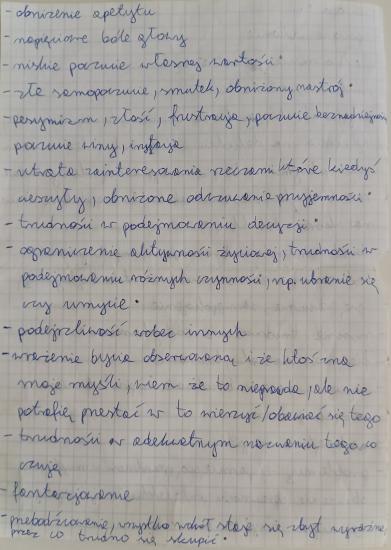 - obniżenie apetytu
- napięciowe bóle głowy
- niskie poczucie własnej wartości •
- złe samopoczucie, smutek, obniżony nastrój •
- pesymizm, złość, frustracja, poczucie beznadziejności
poczucie winy, irytacja
- utrata zainteresowania rzeczami które kiedyś
cieszyły, obniżone odczuwanie przyjemności •
- trudności w podejmowaniu decyzji •
- ograniczenie aktywności życiowej, trudności w
podejmowaniu różnych czynności, np. ubranie się
czy umycie •
- podejrzliwość wobec innych
- wrażenie bycia obserwowaną i że ktoś zna
moje myśli, wiem że to nieprawda, ale nie
potrafię przestać w to wierzyć/obawiać się tego
- trudności w adekwatnym nazwaniu tego co
czuję
- fantazjowanie
- przebodźcowanie, wszystko wokół staje się zbyt wyraźne
przez co trudno się skupić •